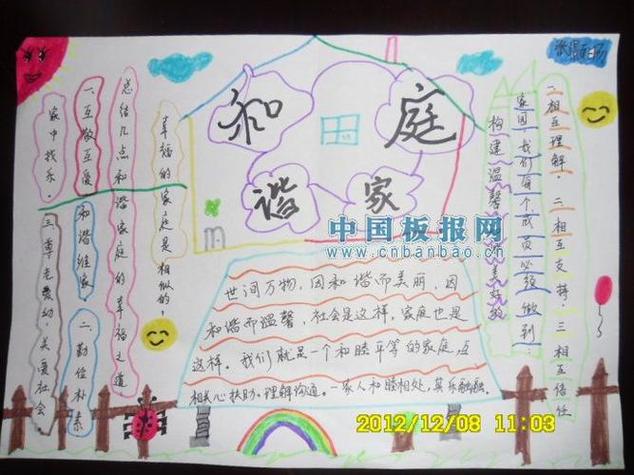 和
谐
家
庭
世间万物，因和谐而美丽，因
和谐而温馨，社会是这样，家庭也是
这样。我们就是一个和睦平等的家庭，互
相关心扶助。理解沟通。一家人和睦相处，其乐融融。
幸福的家庭是相似的，
总结几点和谐家庭的幸福之道
一、互敬互爱
和谐维家。
二、勤俭朴素
家中找乐。
三、尊老爱幼，关爱社会
构建温馨
家园，我们每个成员必须做到：
一相互理解。二相互支持，三相互信任
中国板报网
www.cnbanbao.cn
2012/12/08 11:03